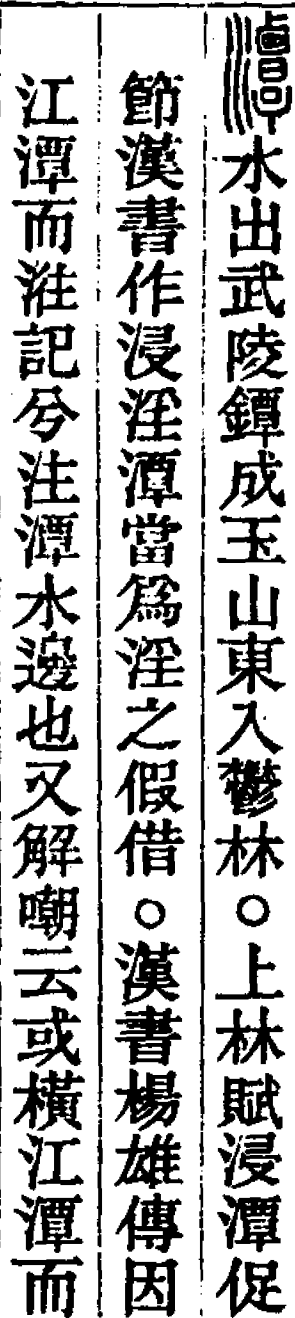 潭水出武陵鐔成玉山東入鬱林○上林賦浸潭促
節漢書作浸淫潭當爲淫之假借○漢書楊雄傳因
江潭而𣶃記兮注潭水邊也又解嘲云或橫江潭而